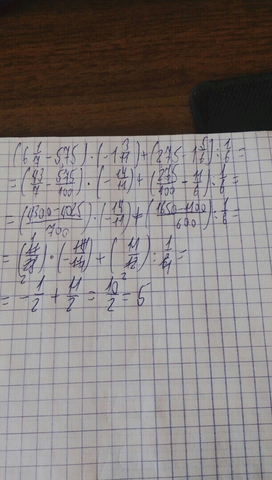 (6 1/7 - 5,75) · (-1 3/11) + (2,75 - 1 5/6) : 1/6 =
= (43/7 - 575/100) · (-14/11) + (275/100 - 11/6) : 1/6 =
= (4300-4025/700) · (-14/11) + (1650-1100/600) : 1/6 =
= (11/28) · (-14/11) + (11/12) : 1/6 =
= -1/2 + 11/2 = 10/2 = 5